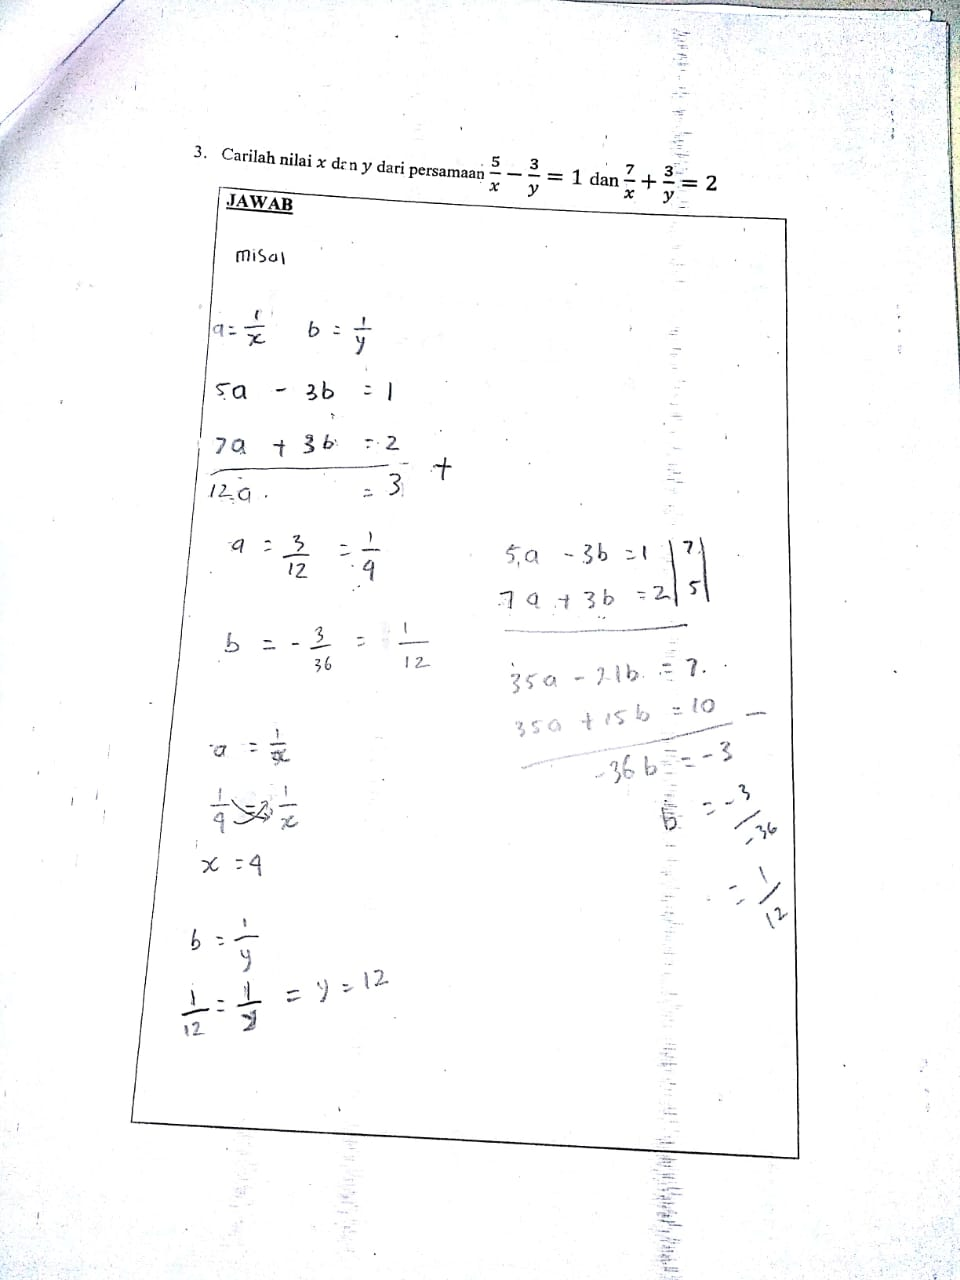 3. Carilah nilai x dan y dari persamaan 5/x − 3/y = 1 dan 7/x + 3/y = 2
JAWAB
misal
a = 1/x b = 1/y
5a - 3b = 1
7a + 3b = 2 +
12a. = 3
a = 3/12 = 1/4
b = - 3/36 = 1/12
a = 1/x
1/4 = 1/x
x = 4
b = 1/y
1/12 = 1/y = y = 12
5a - 3b = 1 | 7 |
7a + 3b = 2 | 5 |
35a - 21b = 7.
35a + 15b = 10 -
-36b = -3
b = -3/-36
= 1/12